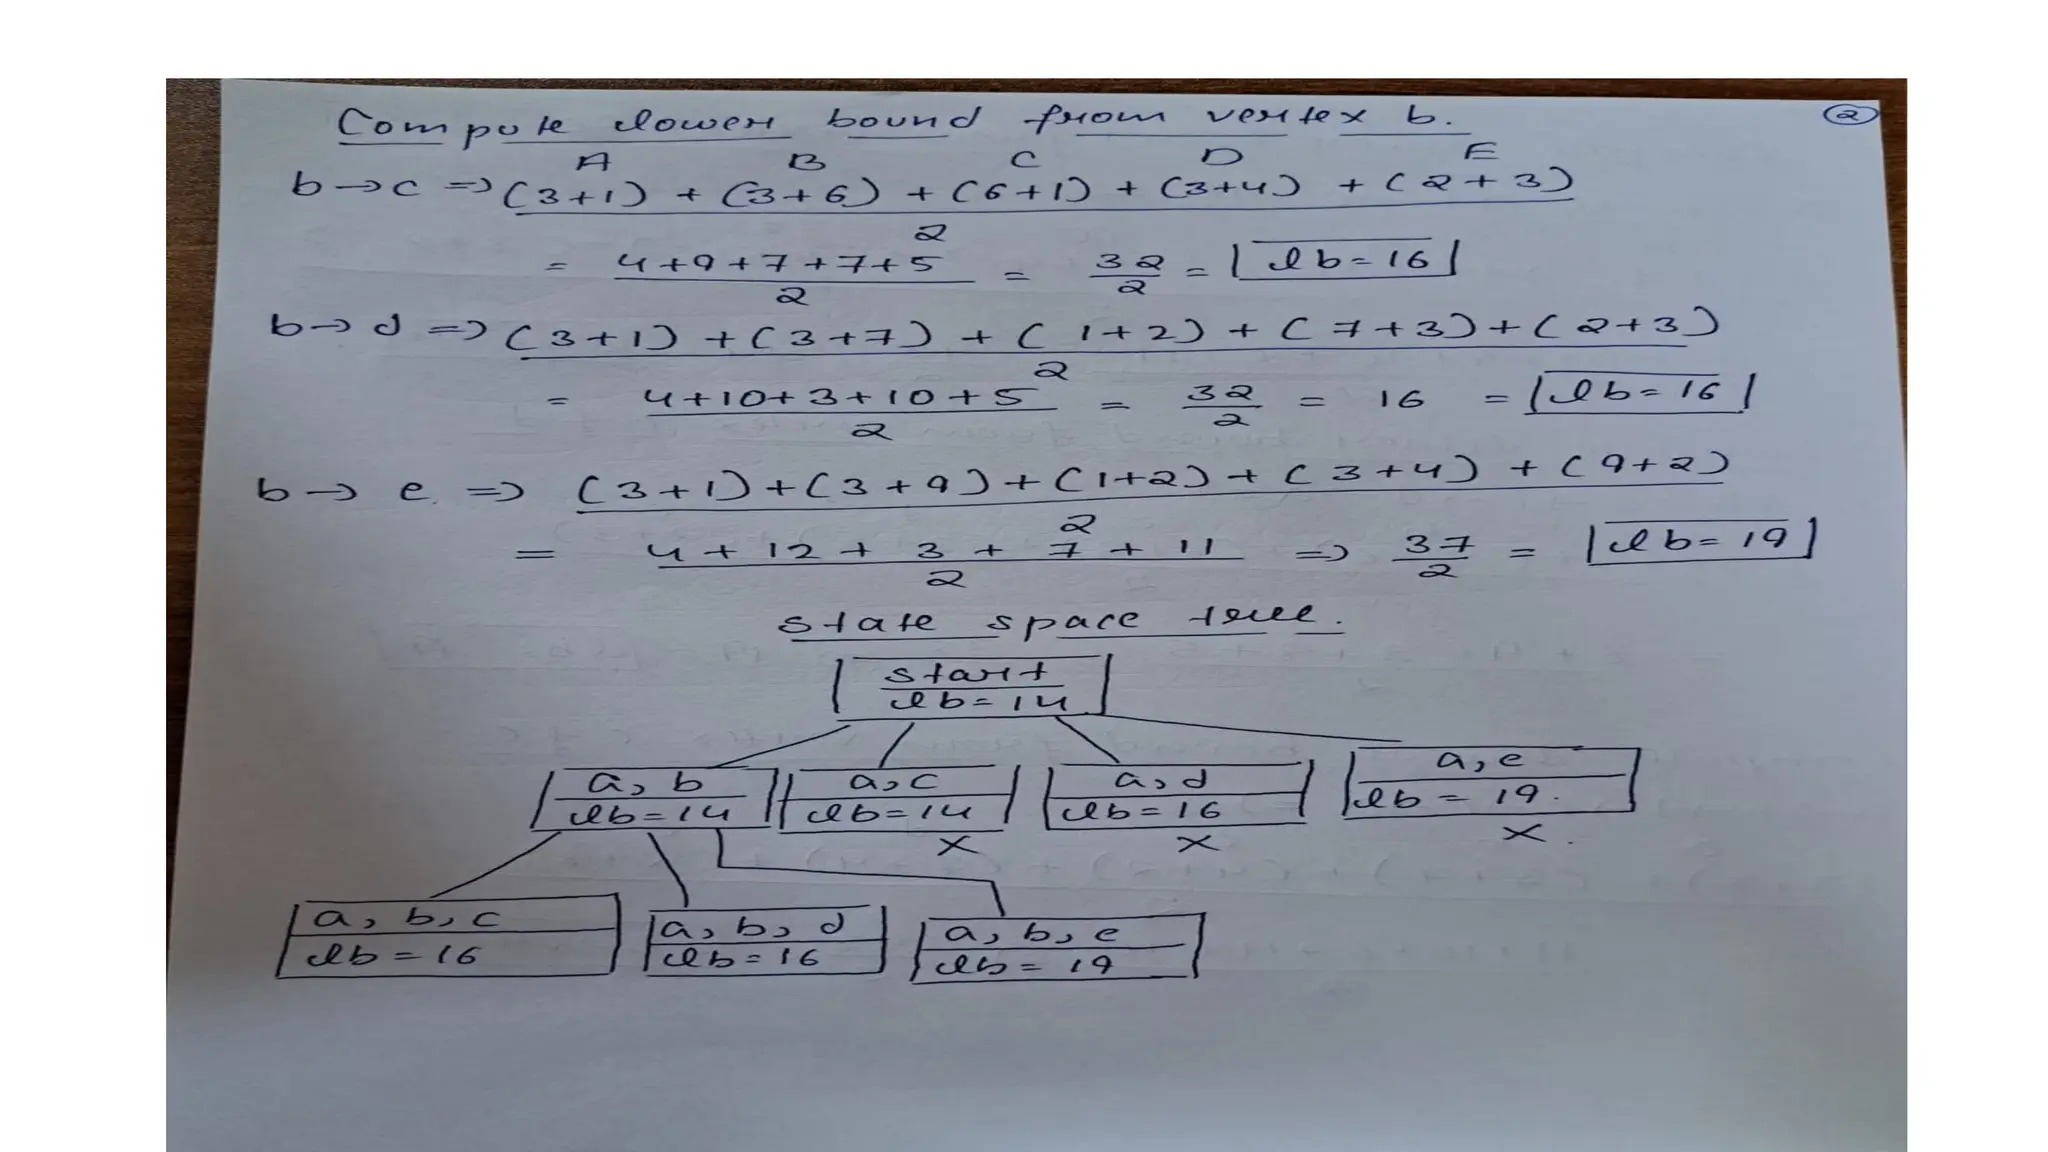 Compute lower bound from vertex b.
2
A B C D E
b→c ⇒ (3+1) + (3+6) + (6+1) + (3+4) + (2+3)
2
= 4+9+7+7+5 = 32 = lb=16
2 2
b→d ⇒ (3+1) + (3+7) + (1+2) + (7+3) + (2+3)
2
= 4+10+3+10+5 = 32 = 16 = lb=16
2 2
b→e. ⇒ (3+1)+(3+9)+(1+2)+(3+4)+(9+2)
2
= 4+12+3+7+11 ⇒ 37 = lb=19
2 2
state space tree.
start
lb=14
a, b a,c a,d a,e
lb=14 lb=14 lb=16 lb=19.
x x x.
a, b, c a, b, d a, b, e
lb=16 lb=16 lb=19